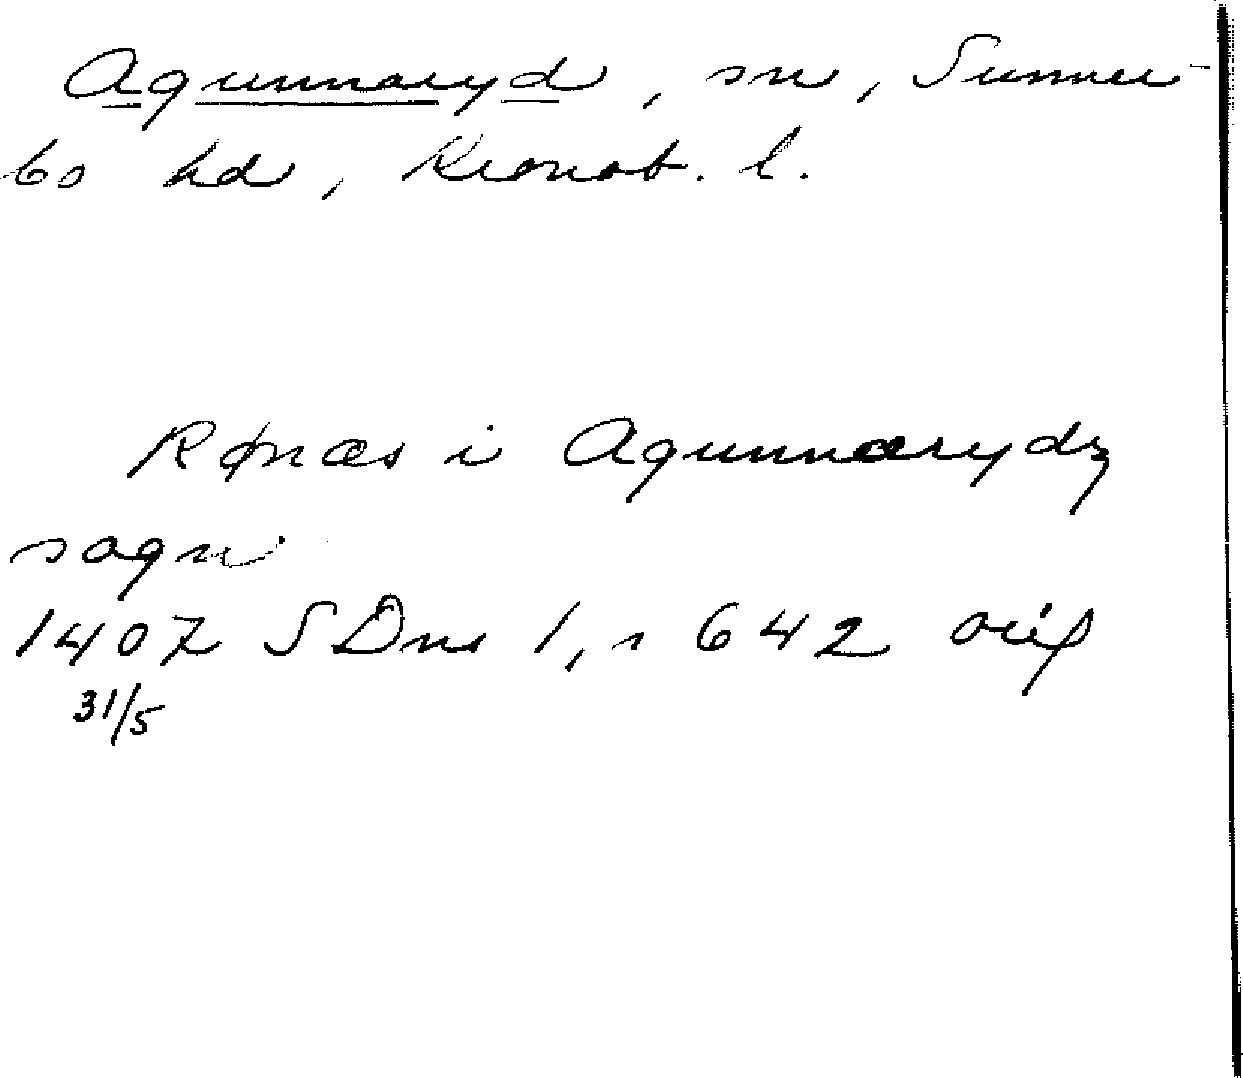 Agunnaryd, sn, Sunner-
bo hd, Kronob. l.
Rønæs i Agunnarydz
sogn
1407 SDns 1, s 642 orig
31/5